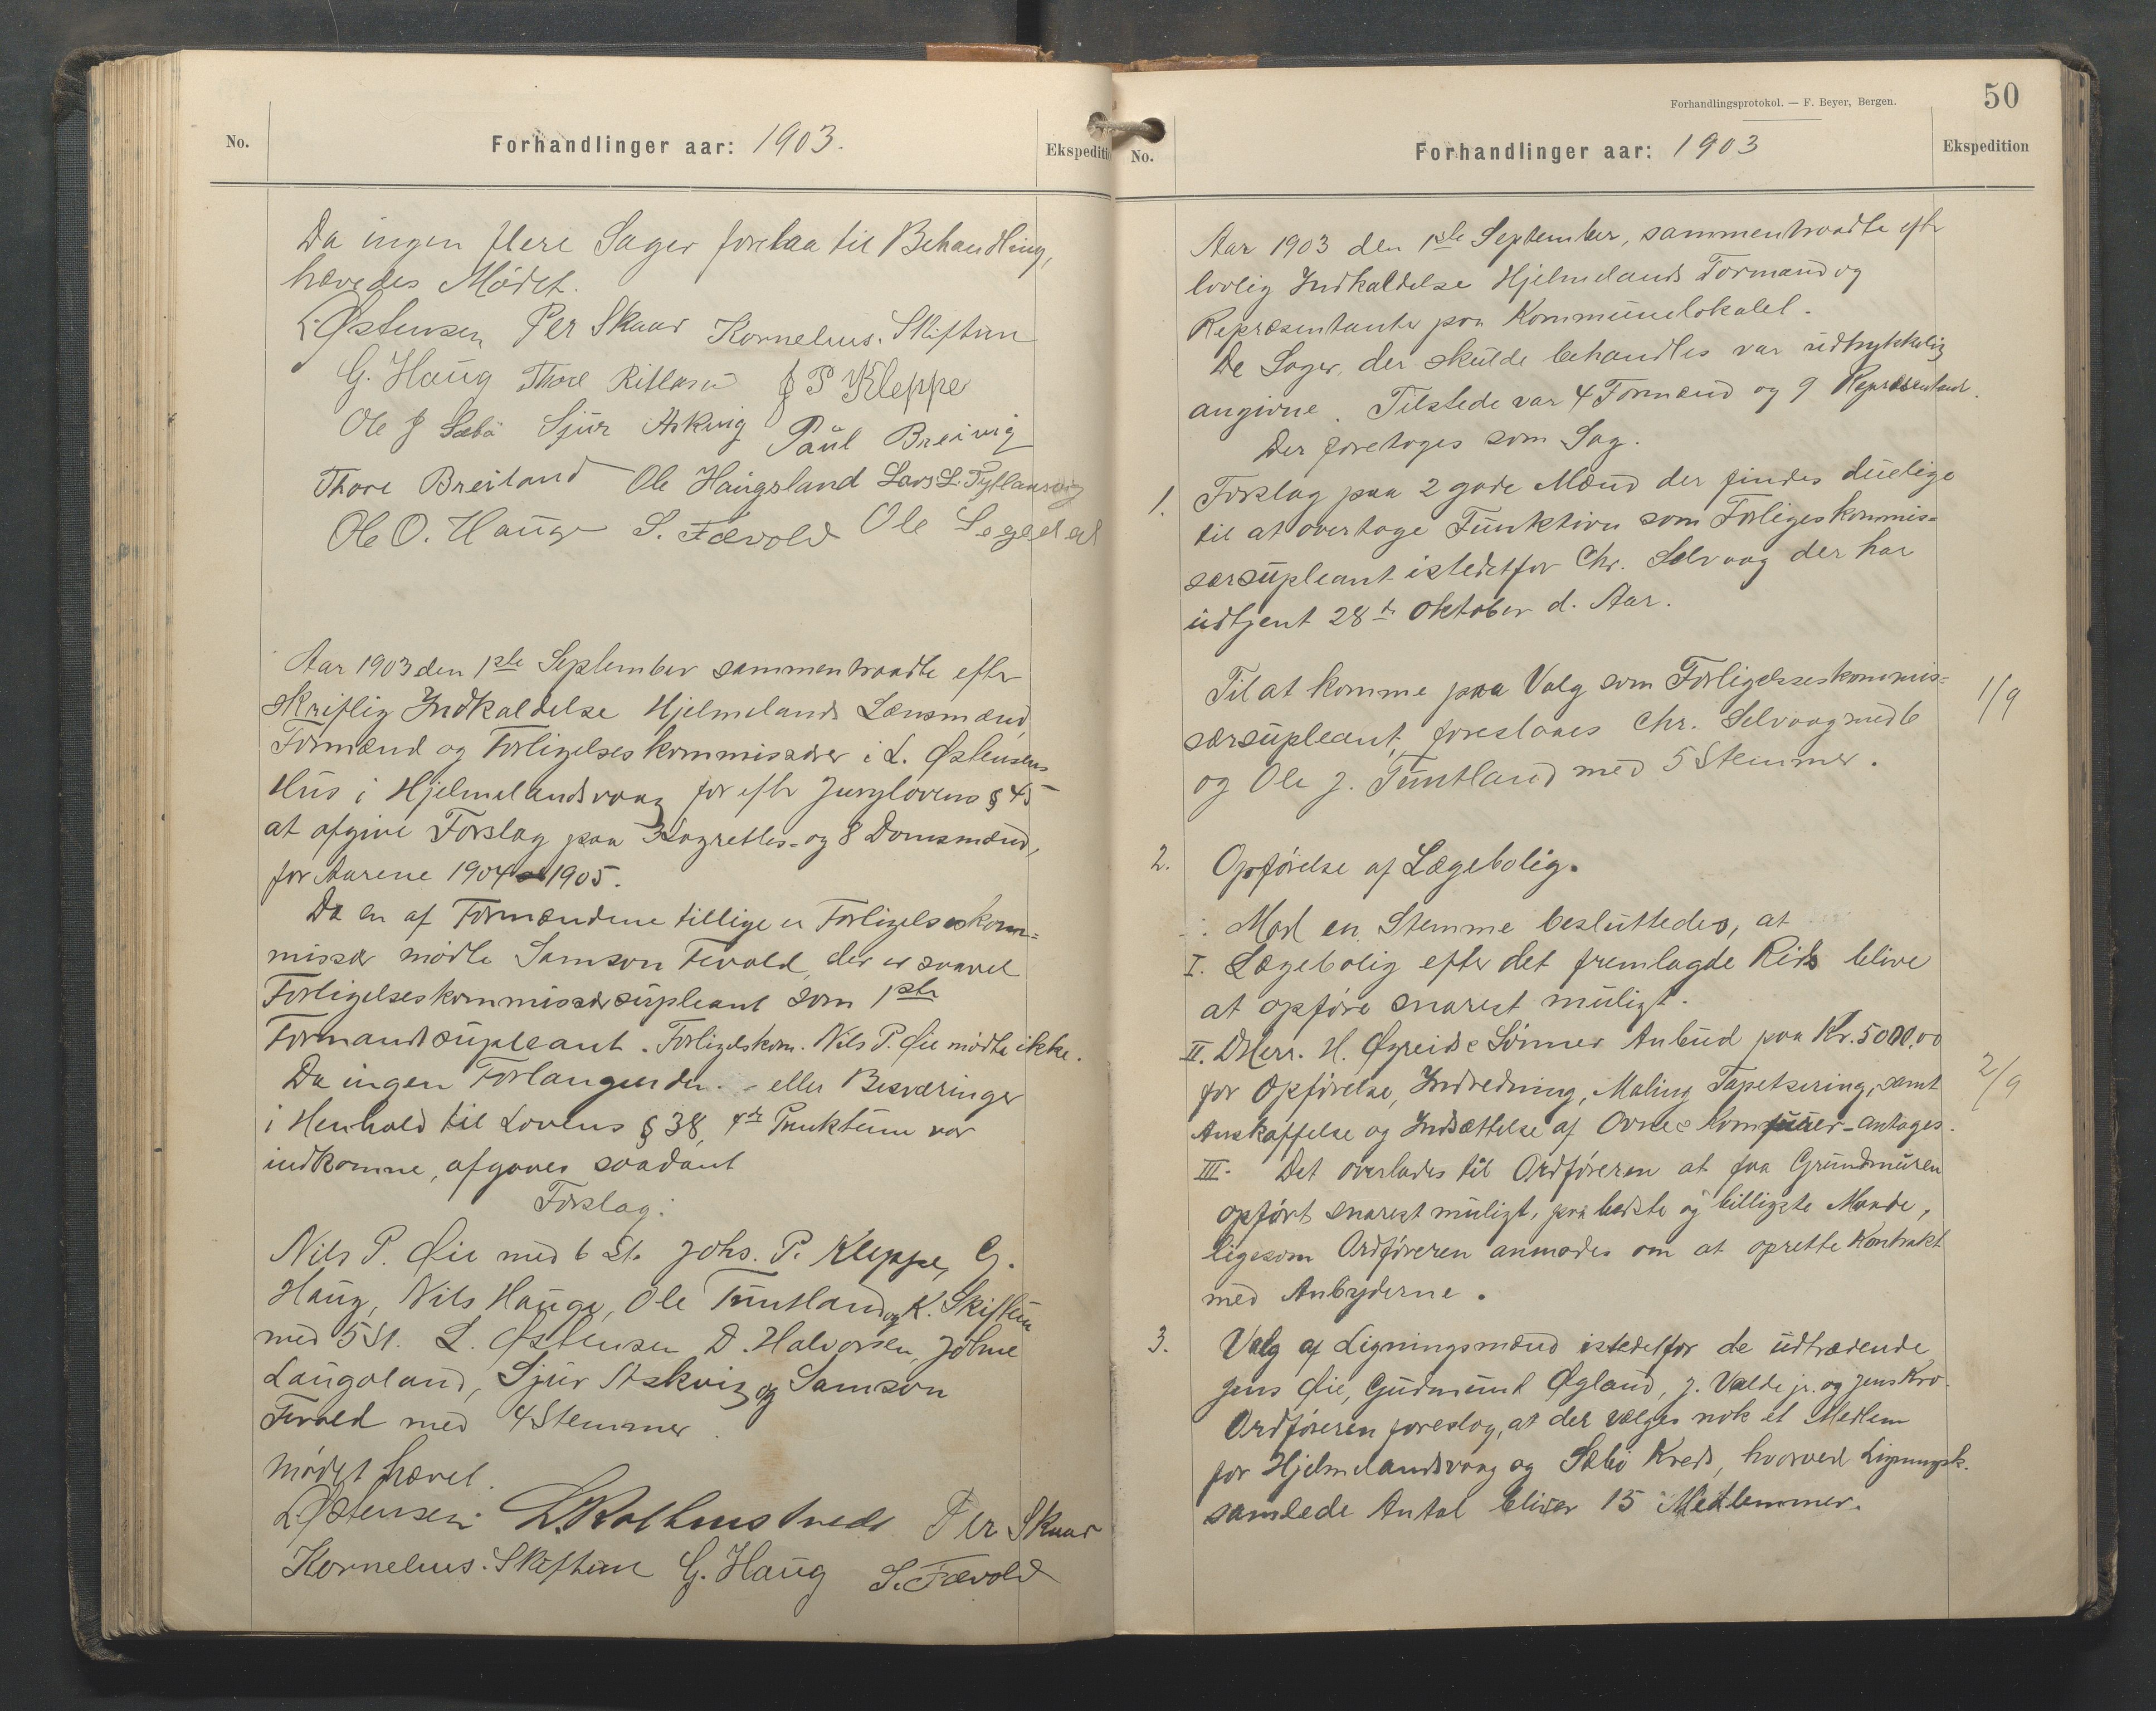 No.
Forhandlinger aar: 1903.
Ekspeditio
Da ingen flere Sager forelaa til Behandling,
hævedes Mödet.
L. Østensen Per Skaar Kornelius. Skiftun
G. Haug Thore Ritland J P Kleppe
Ole J Sæbö Sjur Askvig Paul Breivig
Thore Breiland Ole Haugsland Lars L. Tytlandsvig
Ole O. Hauge S. Fævold Ole Segedal
Aar 1903 den 1ste September sammentraadte efter
skriftlig Indkaldelse Hjelmelands Lænsmand,
Formænd og Forligelseskommissærer i L. Østensens
Hus i Hjelmelandsvaag for efter Jurylovens § 45
at afgive Forslag paa 3 Lagrettes- og 8 Domsmænd,
for Aarene 1904 1905.
Da en af Formændene tillige er Forligelseskom=
missær mödte Samson Fevold, der er saavel
Forligelseskommissærsupleant som 1ste
Formandssupleant. Forligelskom. Nils P. Øie mödte ikke.
Da ingen Forlangender eller Besværinger
i Henhold til Lovens § 38, 4de Punktum var
indkomne, afgaves saadant
Forslag:
Nils P. Øie med 6 St. Johs. P. Kleppe, G.
Haug, Nils Hauge, Ole Tuntland og K. Skiftun
med 5 St. L. Østensen D. Halvorsen, Johne
Laugaland, Sjur Askvig og Samson
Fevold med 4 Stemmer.
Mödet hævet.
L. Østensen Per Skaar
Kornelius. Skiftun G. Haug S. Fævold
Forhandlingsprotokol. — F. Beyer, Bergen.
50
No.
Forhandlinger aar: 1903
Ekspedition
Aar 1903 den 1ste September, sammentraadte eftr
lovlig Indkaldelse Hjelmelands Formænd og
Repræsentanter paa Kommunelokalet.
De Sager, der skulde behandles var udtrykkelig
angivne. Tilstede var 4 Formænd og 9 Repræsentant.
Der foretoges som Sag.
1. Forslag paa 2 gode Mænd der findes duelige
til at overtage Funktion som Forligeskommis=
særsupleant istedetfor Chr. Selvaag der har
udtjent 28de Oktober d. Aar.
Til at komme paa Valg som Forligelsseskommis=
særsupleant, foreslaaes Chr. Selvaag med 6
og Ole J. Tuntland med 5 Stemmer.
1/9
2. Opförelse af Lægebolig.
Mod en Stemme besluttedes, at
I. Lægebolig efter det fremlagde Rids blive
at opföre snarest muligt.
II. DHerr. H. Øgreid & Sönner Anbud paa Kr. 5000,00
for Opförelse, Indredning, Maling Tapetsering, samt
Anskaffelse og Indsættelse af Ovne & Komfuer - antages.
2/9
III. Det overlades til Ordföreren at faa Grundmuren
opfört snarest muligt, paa bedste og billigste Maade,
ligesom Ordföreren anmodes om at oprette Kontrakt
med Anbyderne.
3. Valg af Ligningsmænd istedetfor de udtrædende
Jens Øie, Gudmund Øgland, J. Valde jr. og Jens Kro.
Ordföreren foreslog, at der vælges nok et Medlem
for Hjelmelandsvaag og Sæbö Kreds, hvorved Ligningsk.
samlede Antal bliver 15 Medlemmer.